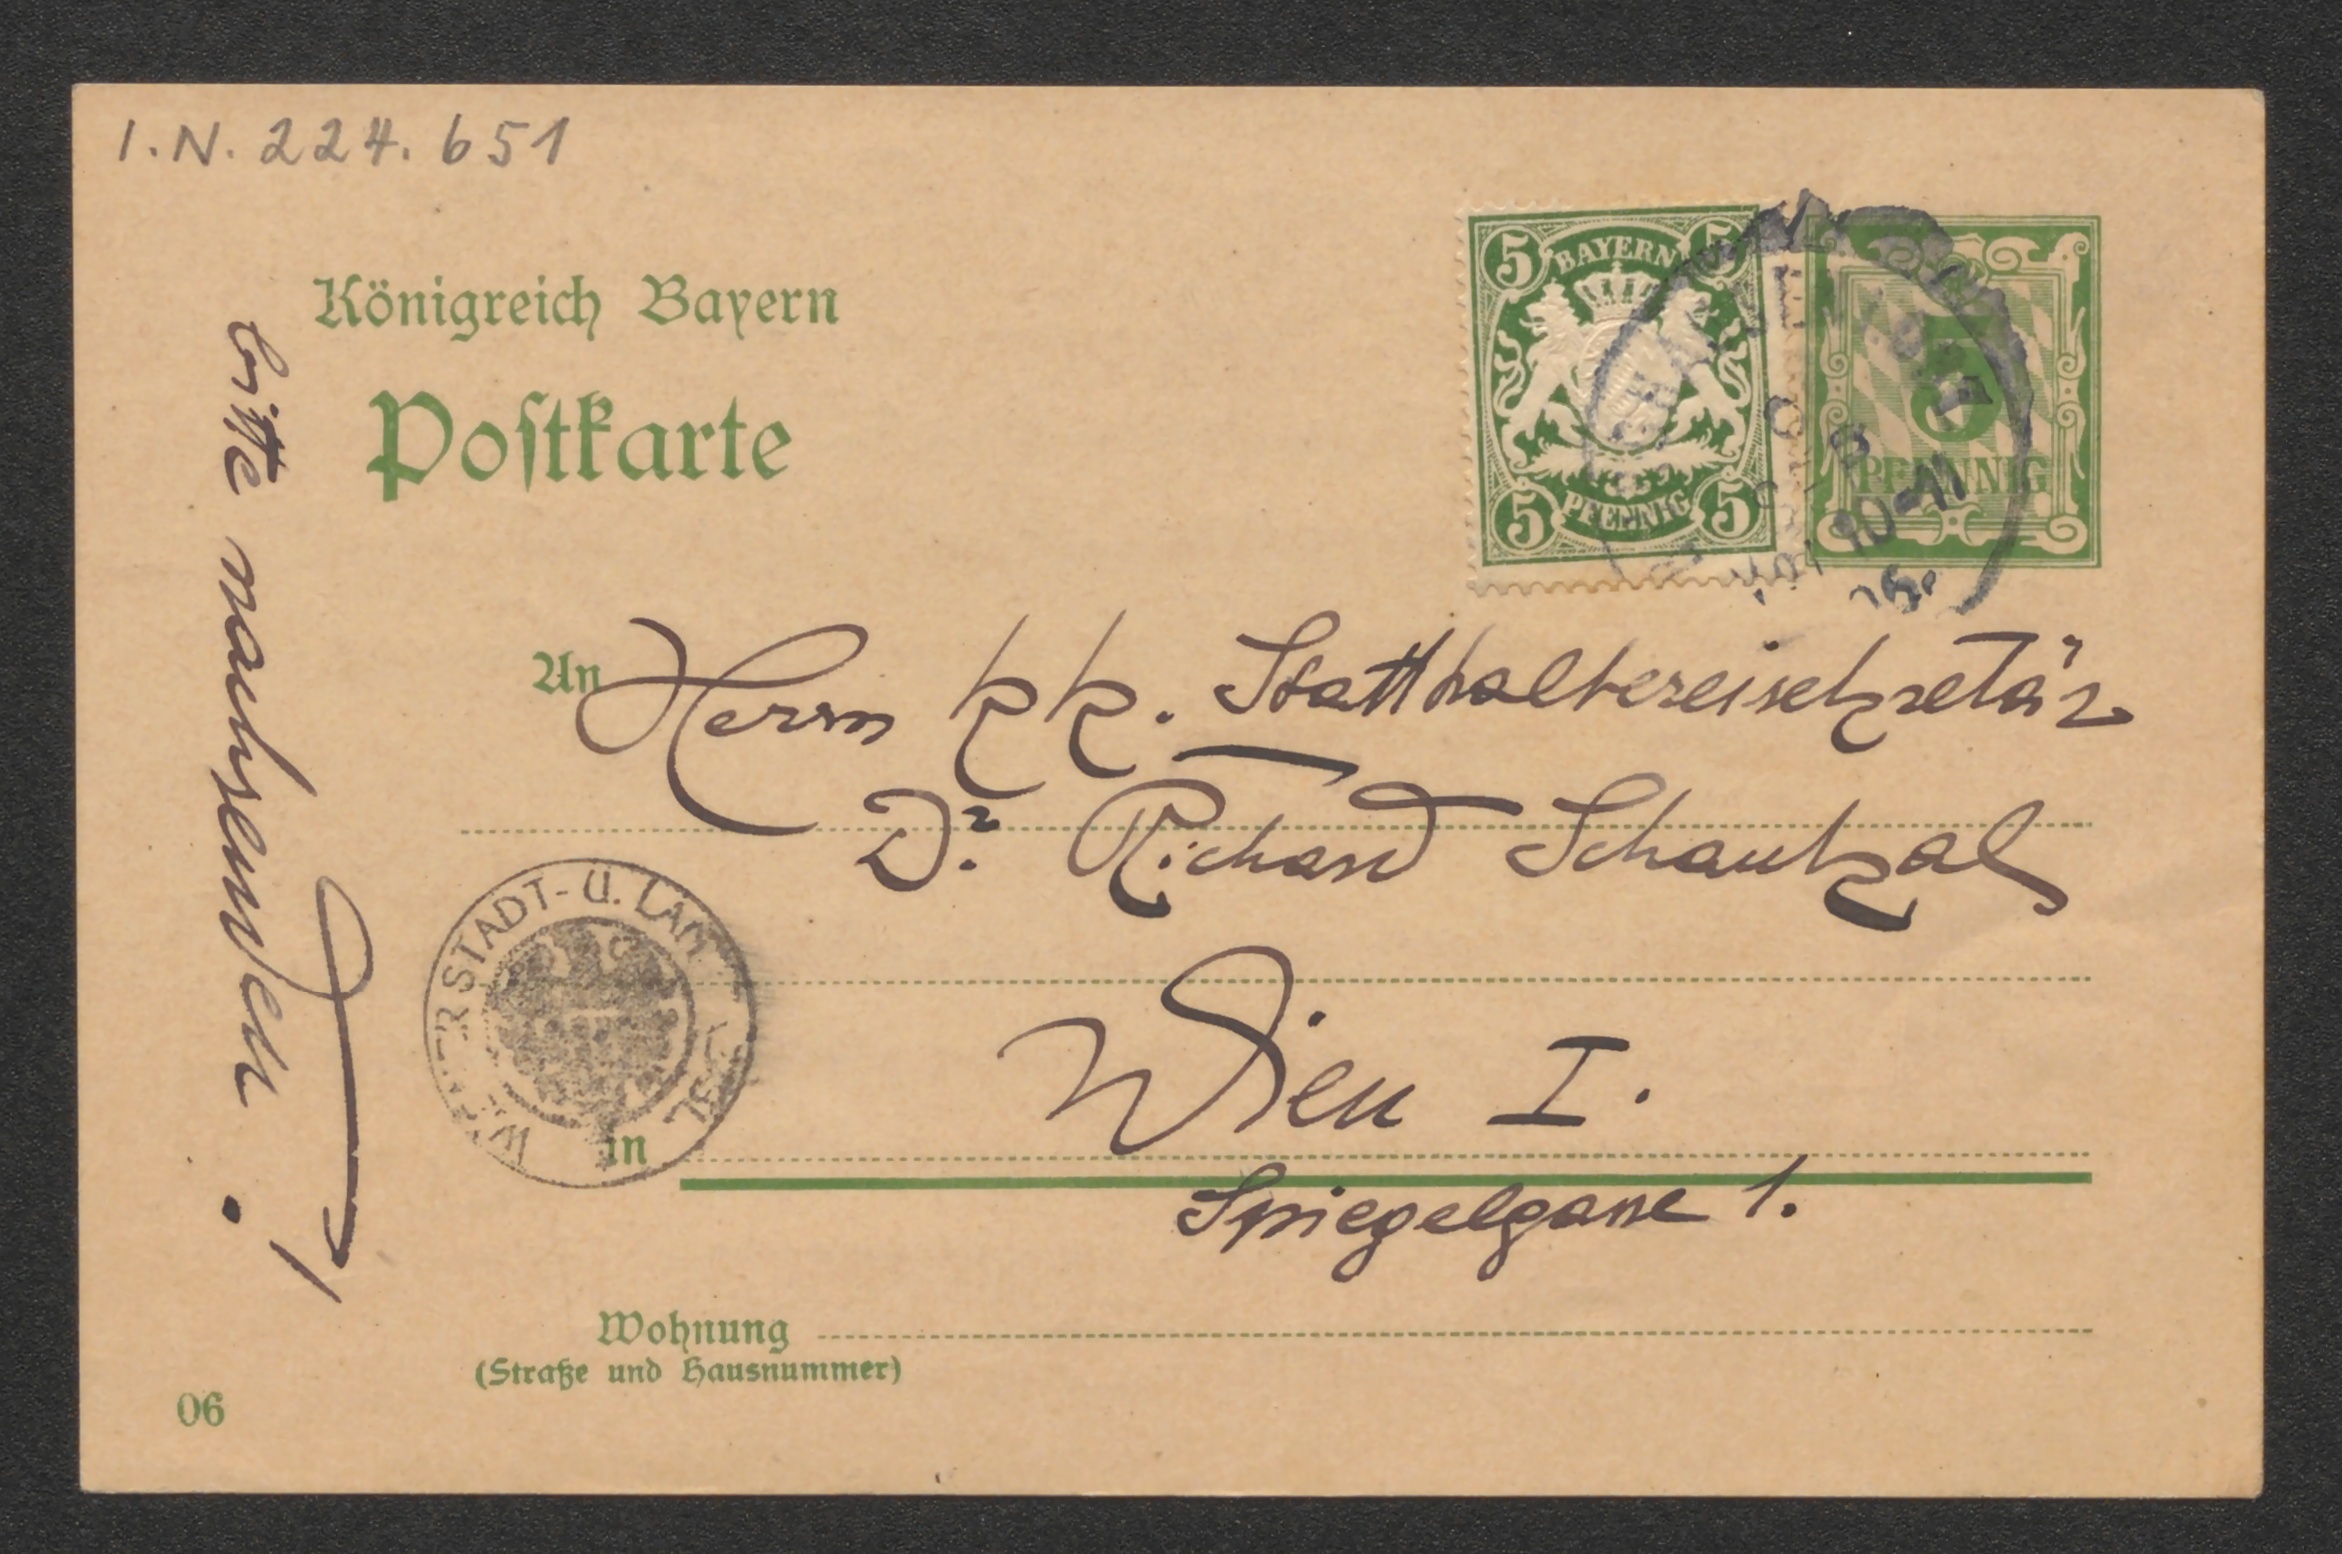 I.N. 224.651
Königreich Bayern
Postkarte
BAYERN
5 5
5 PFENNIG 5
5
PFENNIG
10-11
An Herrn kk. Statthaltereisekretär
Dr. Richard Schaukal
in Wien I.
Spiegelgasse 1.
Wohnung
(Straße und Hausnummer)
06
bitte nachsenden!
STADT- U.